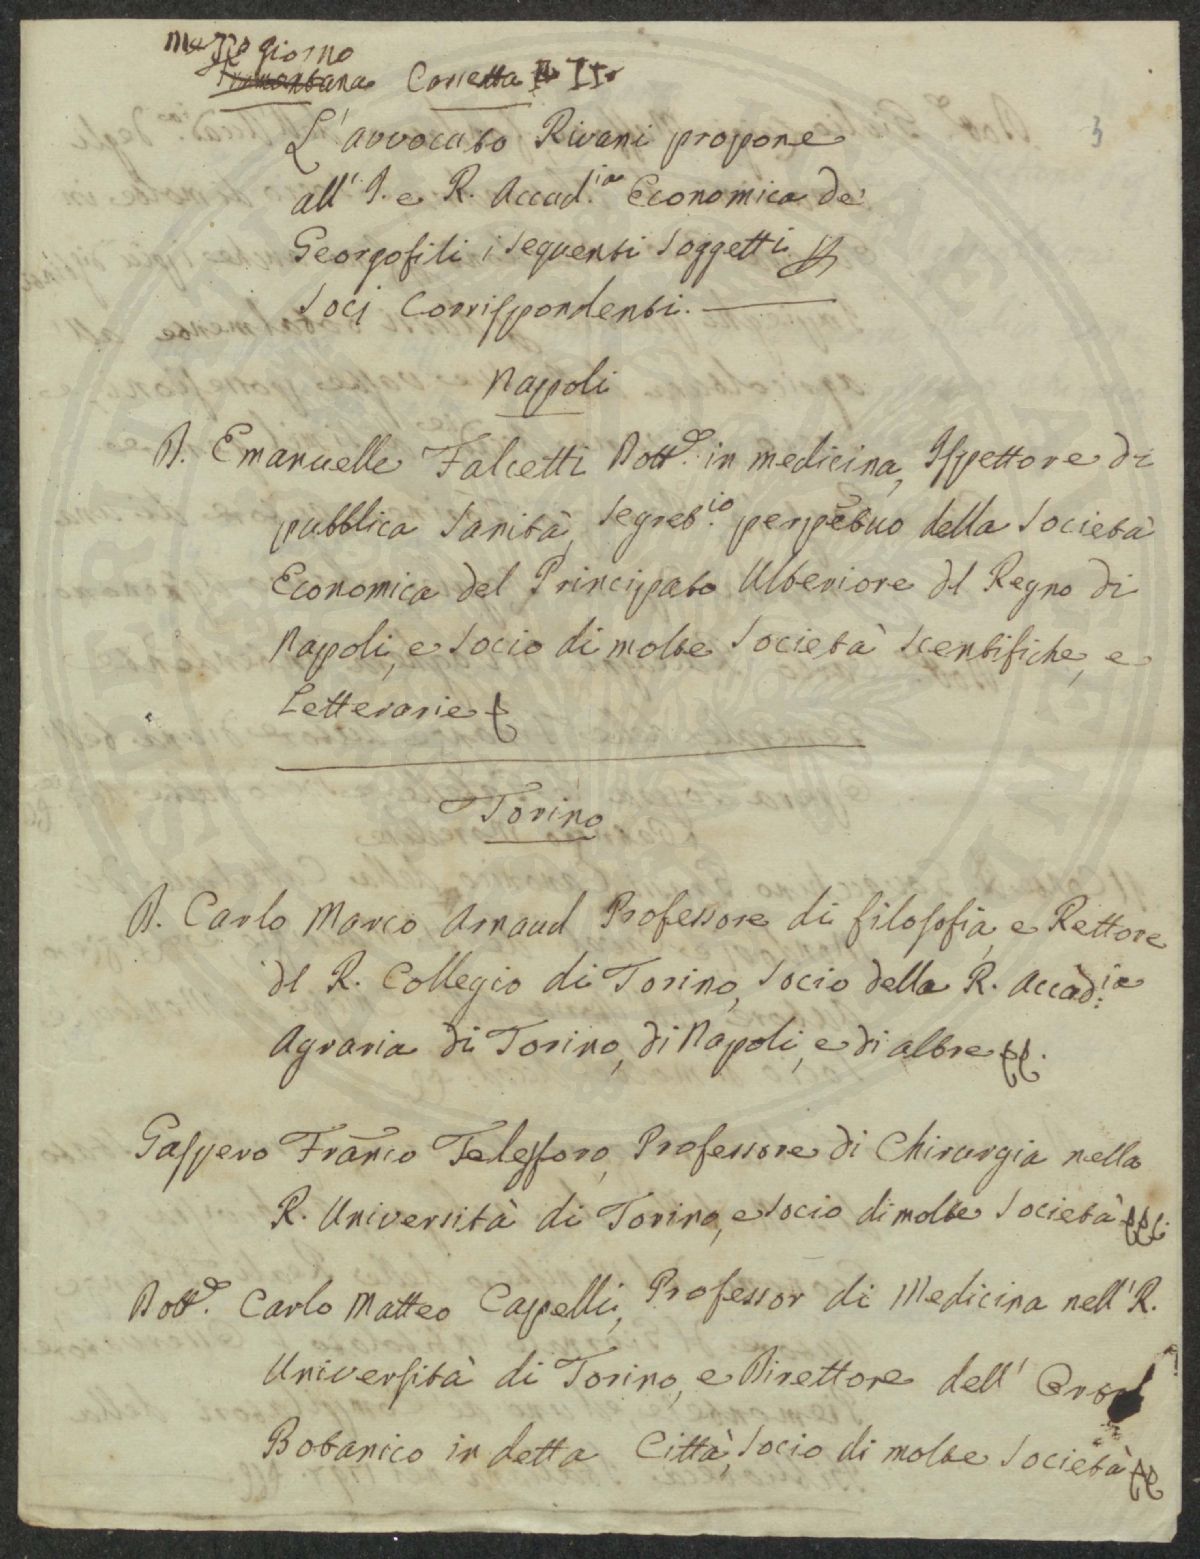 Mezzogiorno
Tramontana Corretta II
3
L'avvocato Rivani propone
all' I. e R. Accad.ia Economica de'
Georgofili i seguenti soggetti p
Soci Corrispondenti.
Napoli
D. Emanuelle Falcetti Dott.e in medicina, Ispettore di
pubblica Sanità, Segret.io perpetuo della Società
Economica del Principato Ulteriore del Regno di
Napoli, e Socio di molte Società Scentifiche, e
Letterarie
Torino
D. Carlo Marco Arnaud Professore di filosofia, e Rettore
del R. Collegio di Torino, Socio della R. Accad.ia
Agraria di Torino, di Napoli, e di altre
Gaspero Franco Telesforo, Professore di Chirurgia nella
R. Università di Torino, e Socio di molte Società
Dott.e Carlo Matteo Capelli, Professor di Medicina nell' R.
Università di Torino, e Direttore dell'
Botanico in detta Città, Socio di molte Società